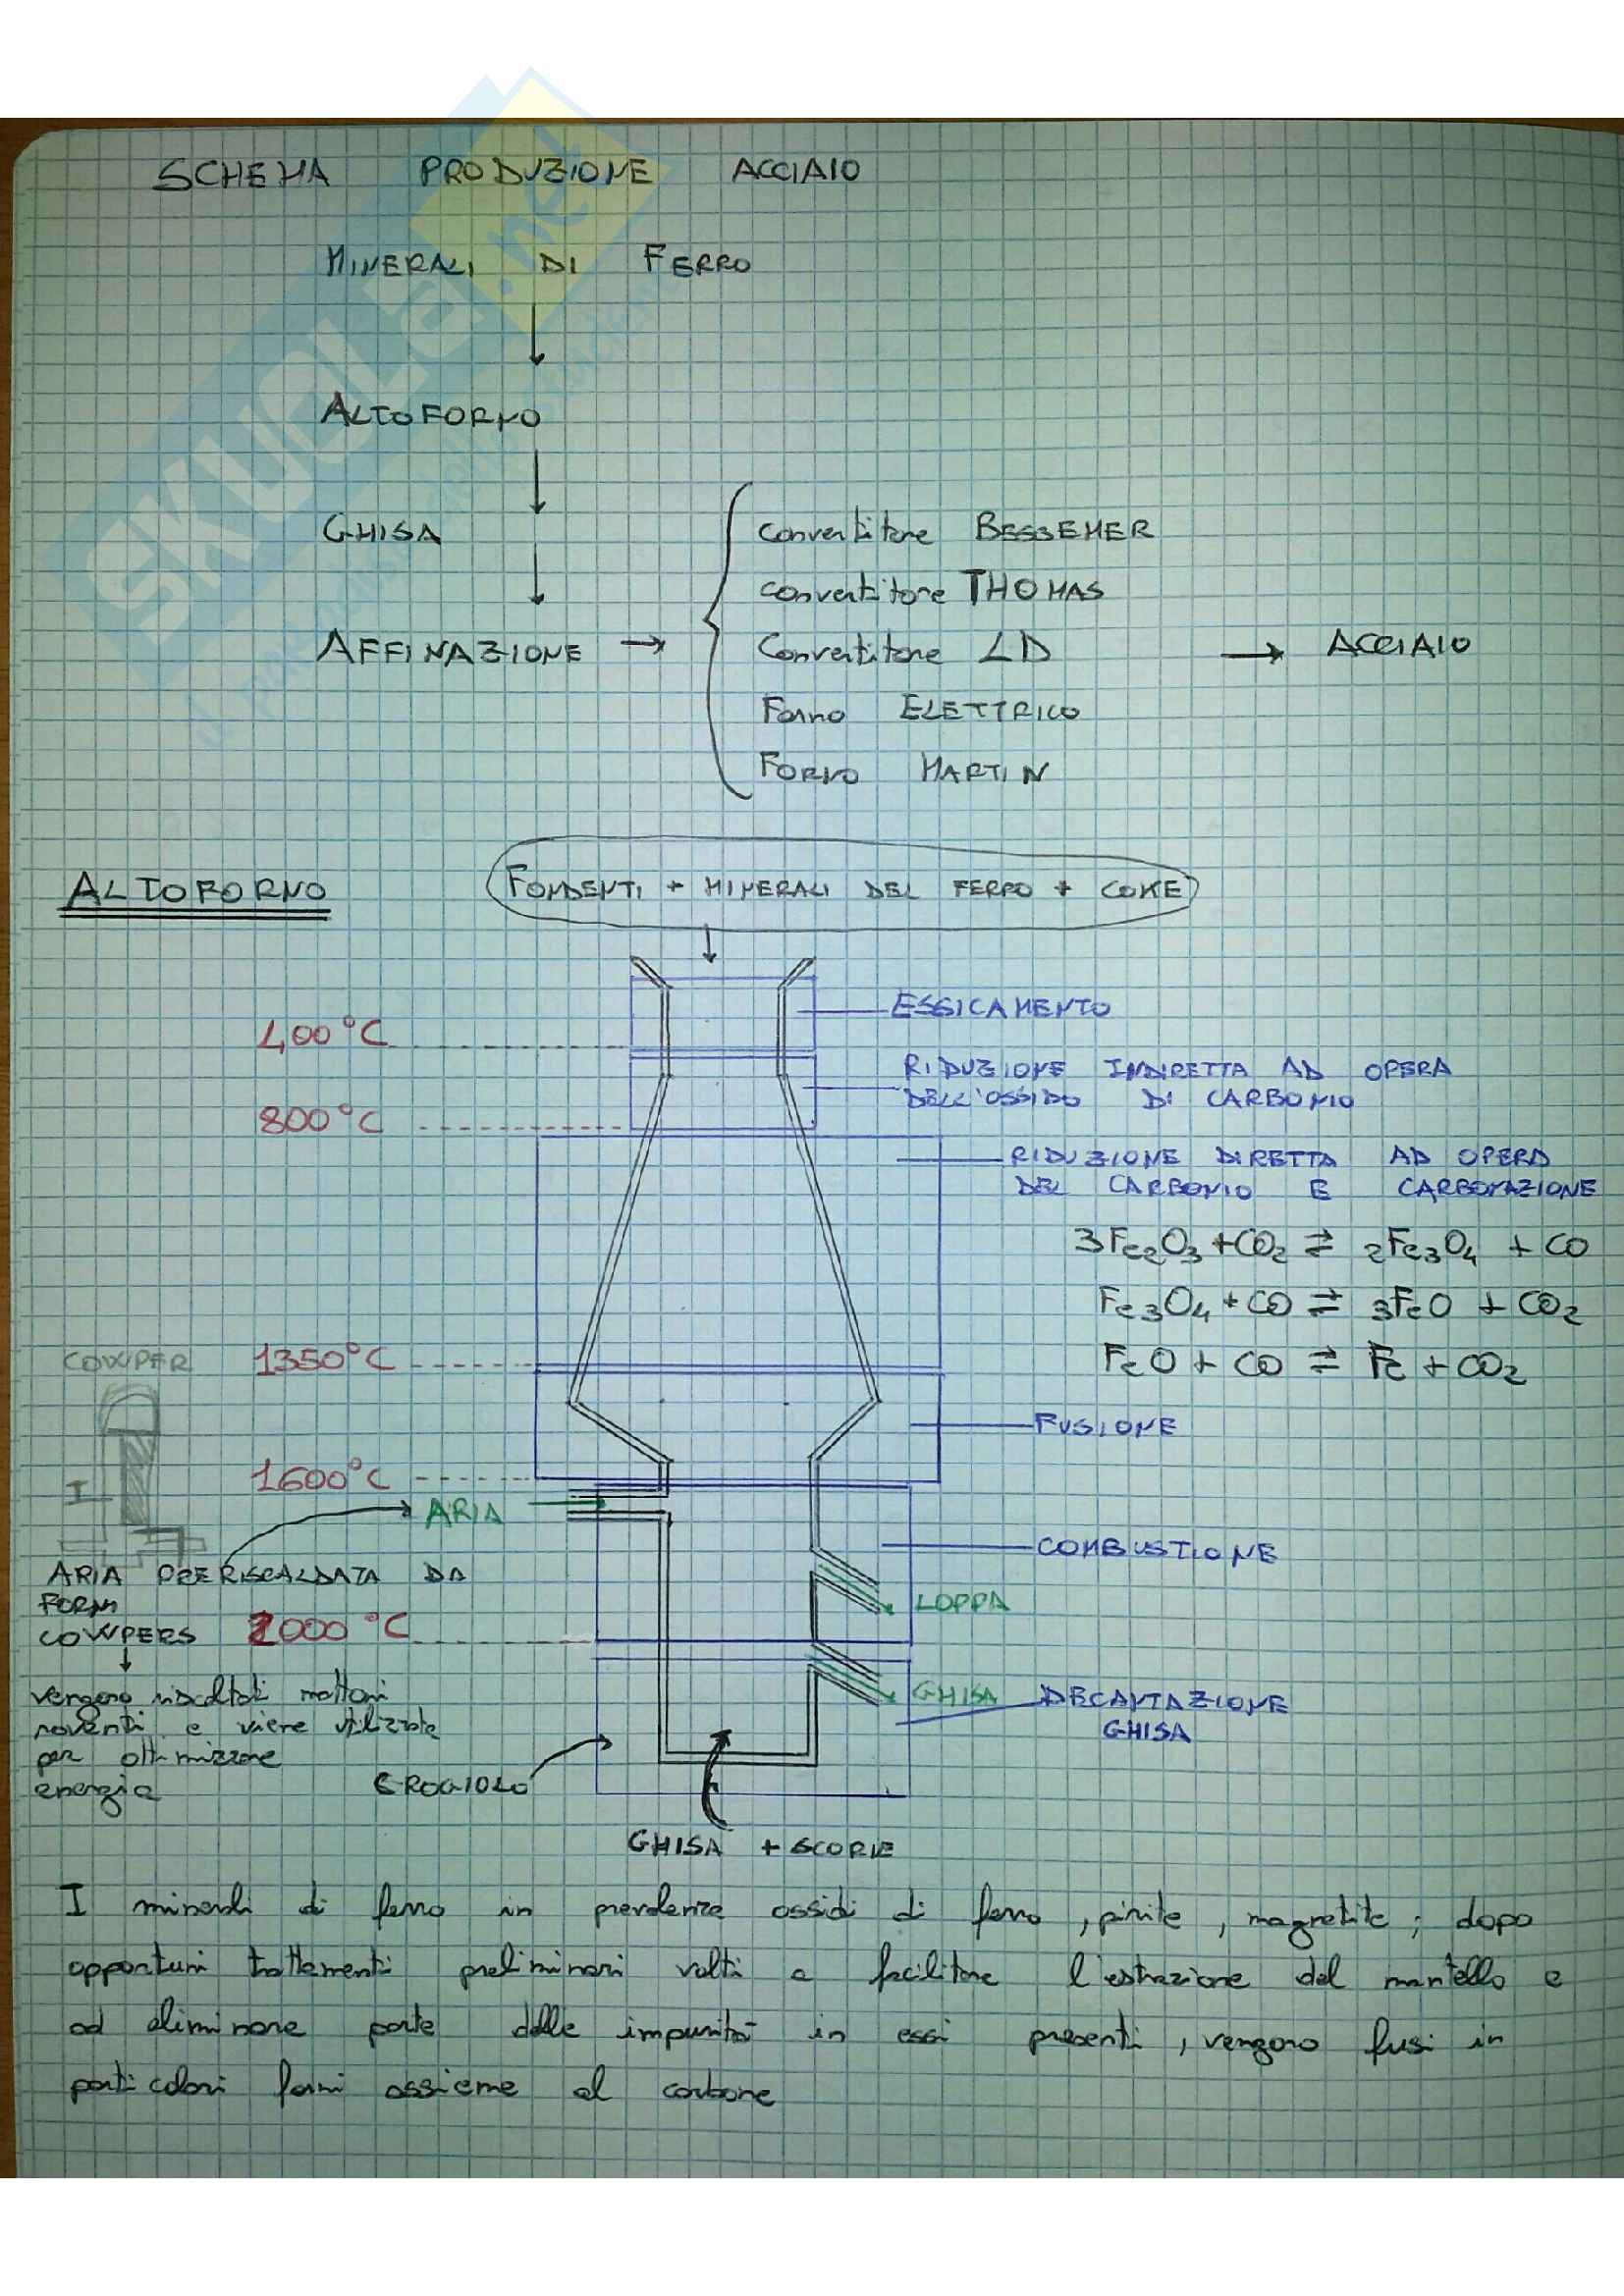 SCHEMA PRODUZIONE ACCIAIO
MINERALI DI FERRO
ALTOFORNO
GHISA
AFFINAZIONE →
Convertitore BESSEMER
convertitore THOMAS
Convertitore LD
Forno ELETTRICO
FORNO MARTIN
→ ACCIAIO
SKUOLa.net
ALTOFORNO
FONDENTI + MINERALI DEL FERRO + COKE
400°C
ESSICAMENTO
RIDUZIONE INDIRETTA AD OPERA
DELL'OSSIDO DI CARBONIO
800°C
RIDUZIONE DIRETTA AD OPERA
DEL CARBONIO E CARBONAZIONE
3Fe₂O₃ + CO₂ ⇌ 2Fe₃O₄ + CO
Fe₃O₄ + CO ⇌ 3FeO + CO₂
FeO + CO ⇌ Fe + CO₂
COWPER
1350°C
FUSIONE
1600°C
ARIA
COMBUSTIONE
ARIA PRERISCALDATA DA
FORNI
COWPERS
LOPPA
2000°C
vengono riscaltati mattoni
roventi e viene utilizzata
per ottimizzare
energia
GHISA
DECANTAZIONE
GHISA
CROGIOLO
GHISA + SCORIE
I minerali di ferro in prevalenza ossidi di ferro, pirite, magnetite; dopo
opportuni trattamenti preliminari volti a facilitare l'estrazione del mantello e
ad eliminare parte delle impurità in essi presenti, vengono fusi in
particolari forni assieme al carbone